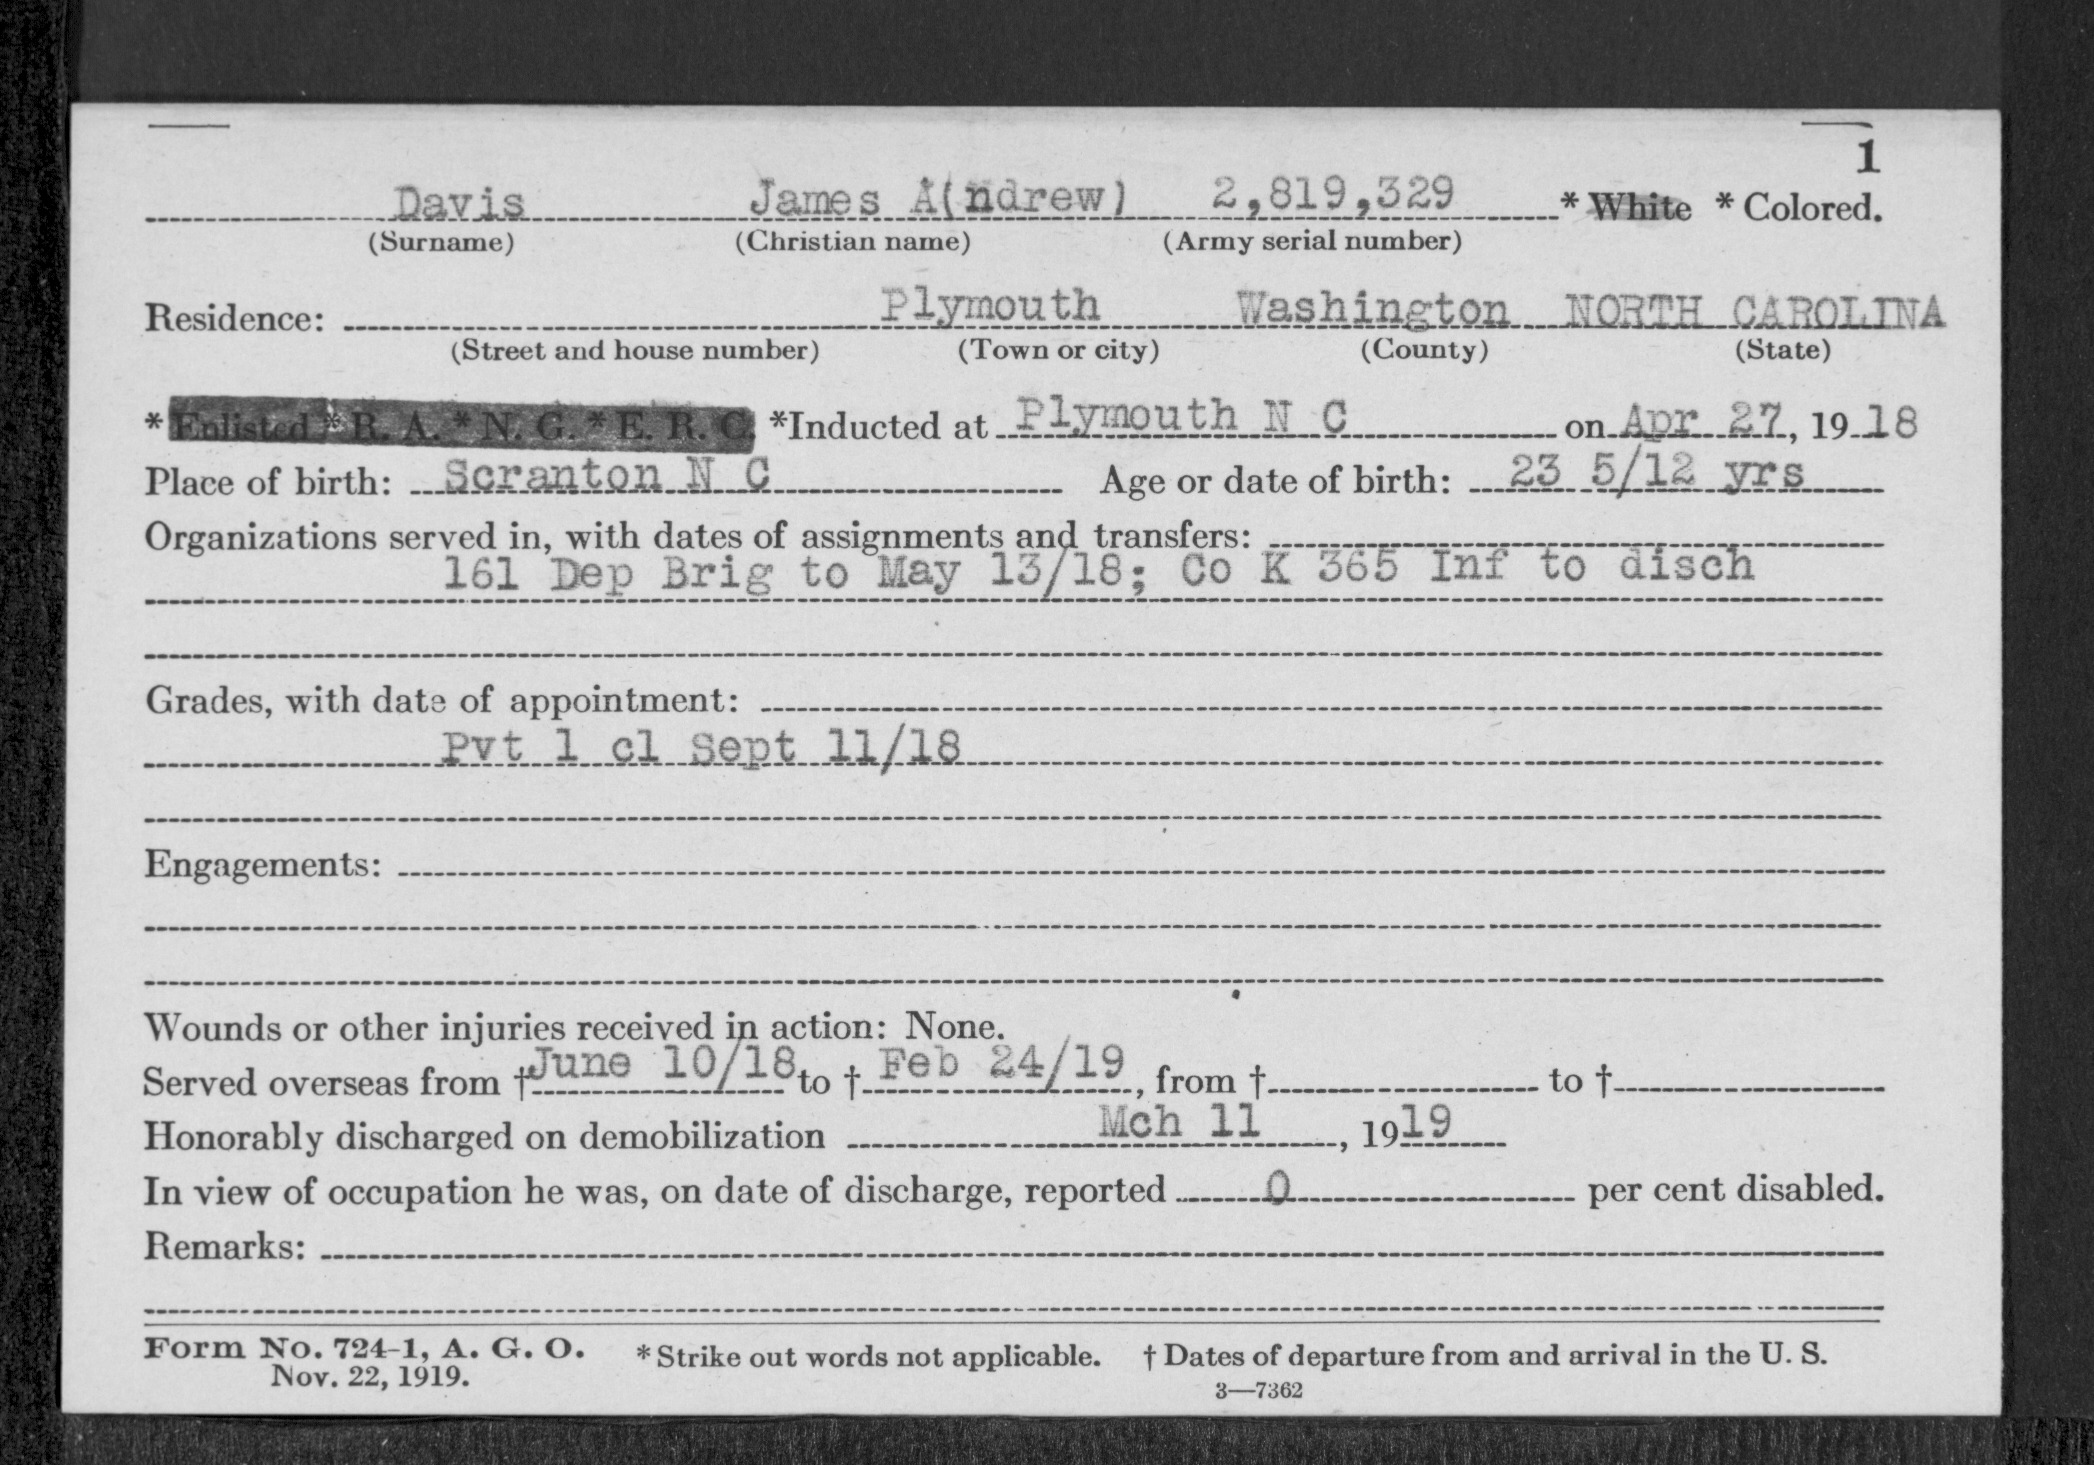 1
Davis James A(ndrew) 2,819,329 * White * Colored.
(Surname) (Christian name) (Army serial number)
Residence: Plymouth Washington NORTH CAROLINA
(Street and house number) (Town or city) (County) (State)
* Enlisted * R. A. * N. G. * E. R. C. *Inducted at Plymouth N C on Apr 27, 1918
Place of birth: Scranton N C Age or date of birth: 23 5/12 yrs
Organizations served in, with dates of assignments and transfers:
161 Dep Brig to May 13/18; Co K 365 Inf to disch
Grades, with date of appointment:
Pvt 1 cl Sept 11/18
Engagements:
Wounds or other injuries received in action: None.
Served overseas from † June 10/18 to † Feb 24/19, from † to †
Honorably discharged on demobilization Mch 11, 1919
In view of occupation he was, on date of discharge, reported 0 per cent disabled.
Remarks:
Form No. 724-1, A. G. O. * Strike out words not applicable. † Dates of departure from and arrival in the U. S.
Nov. 22, 1919.
3—7362